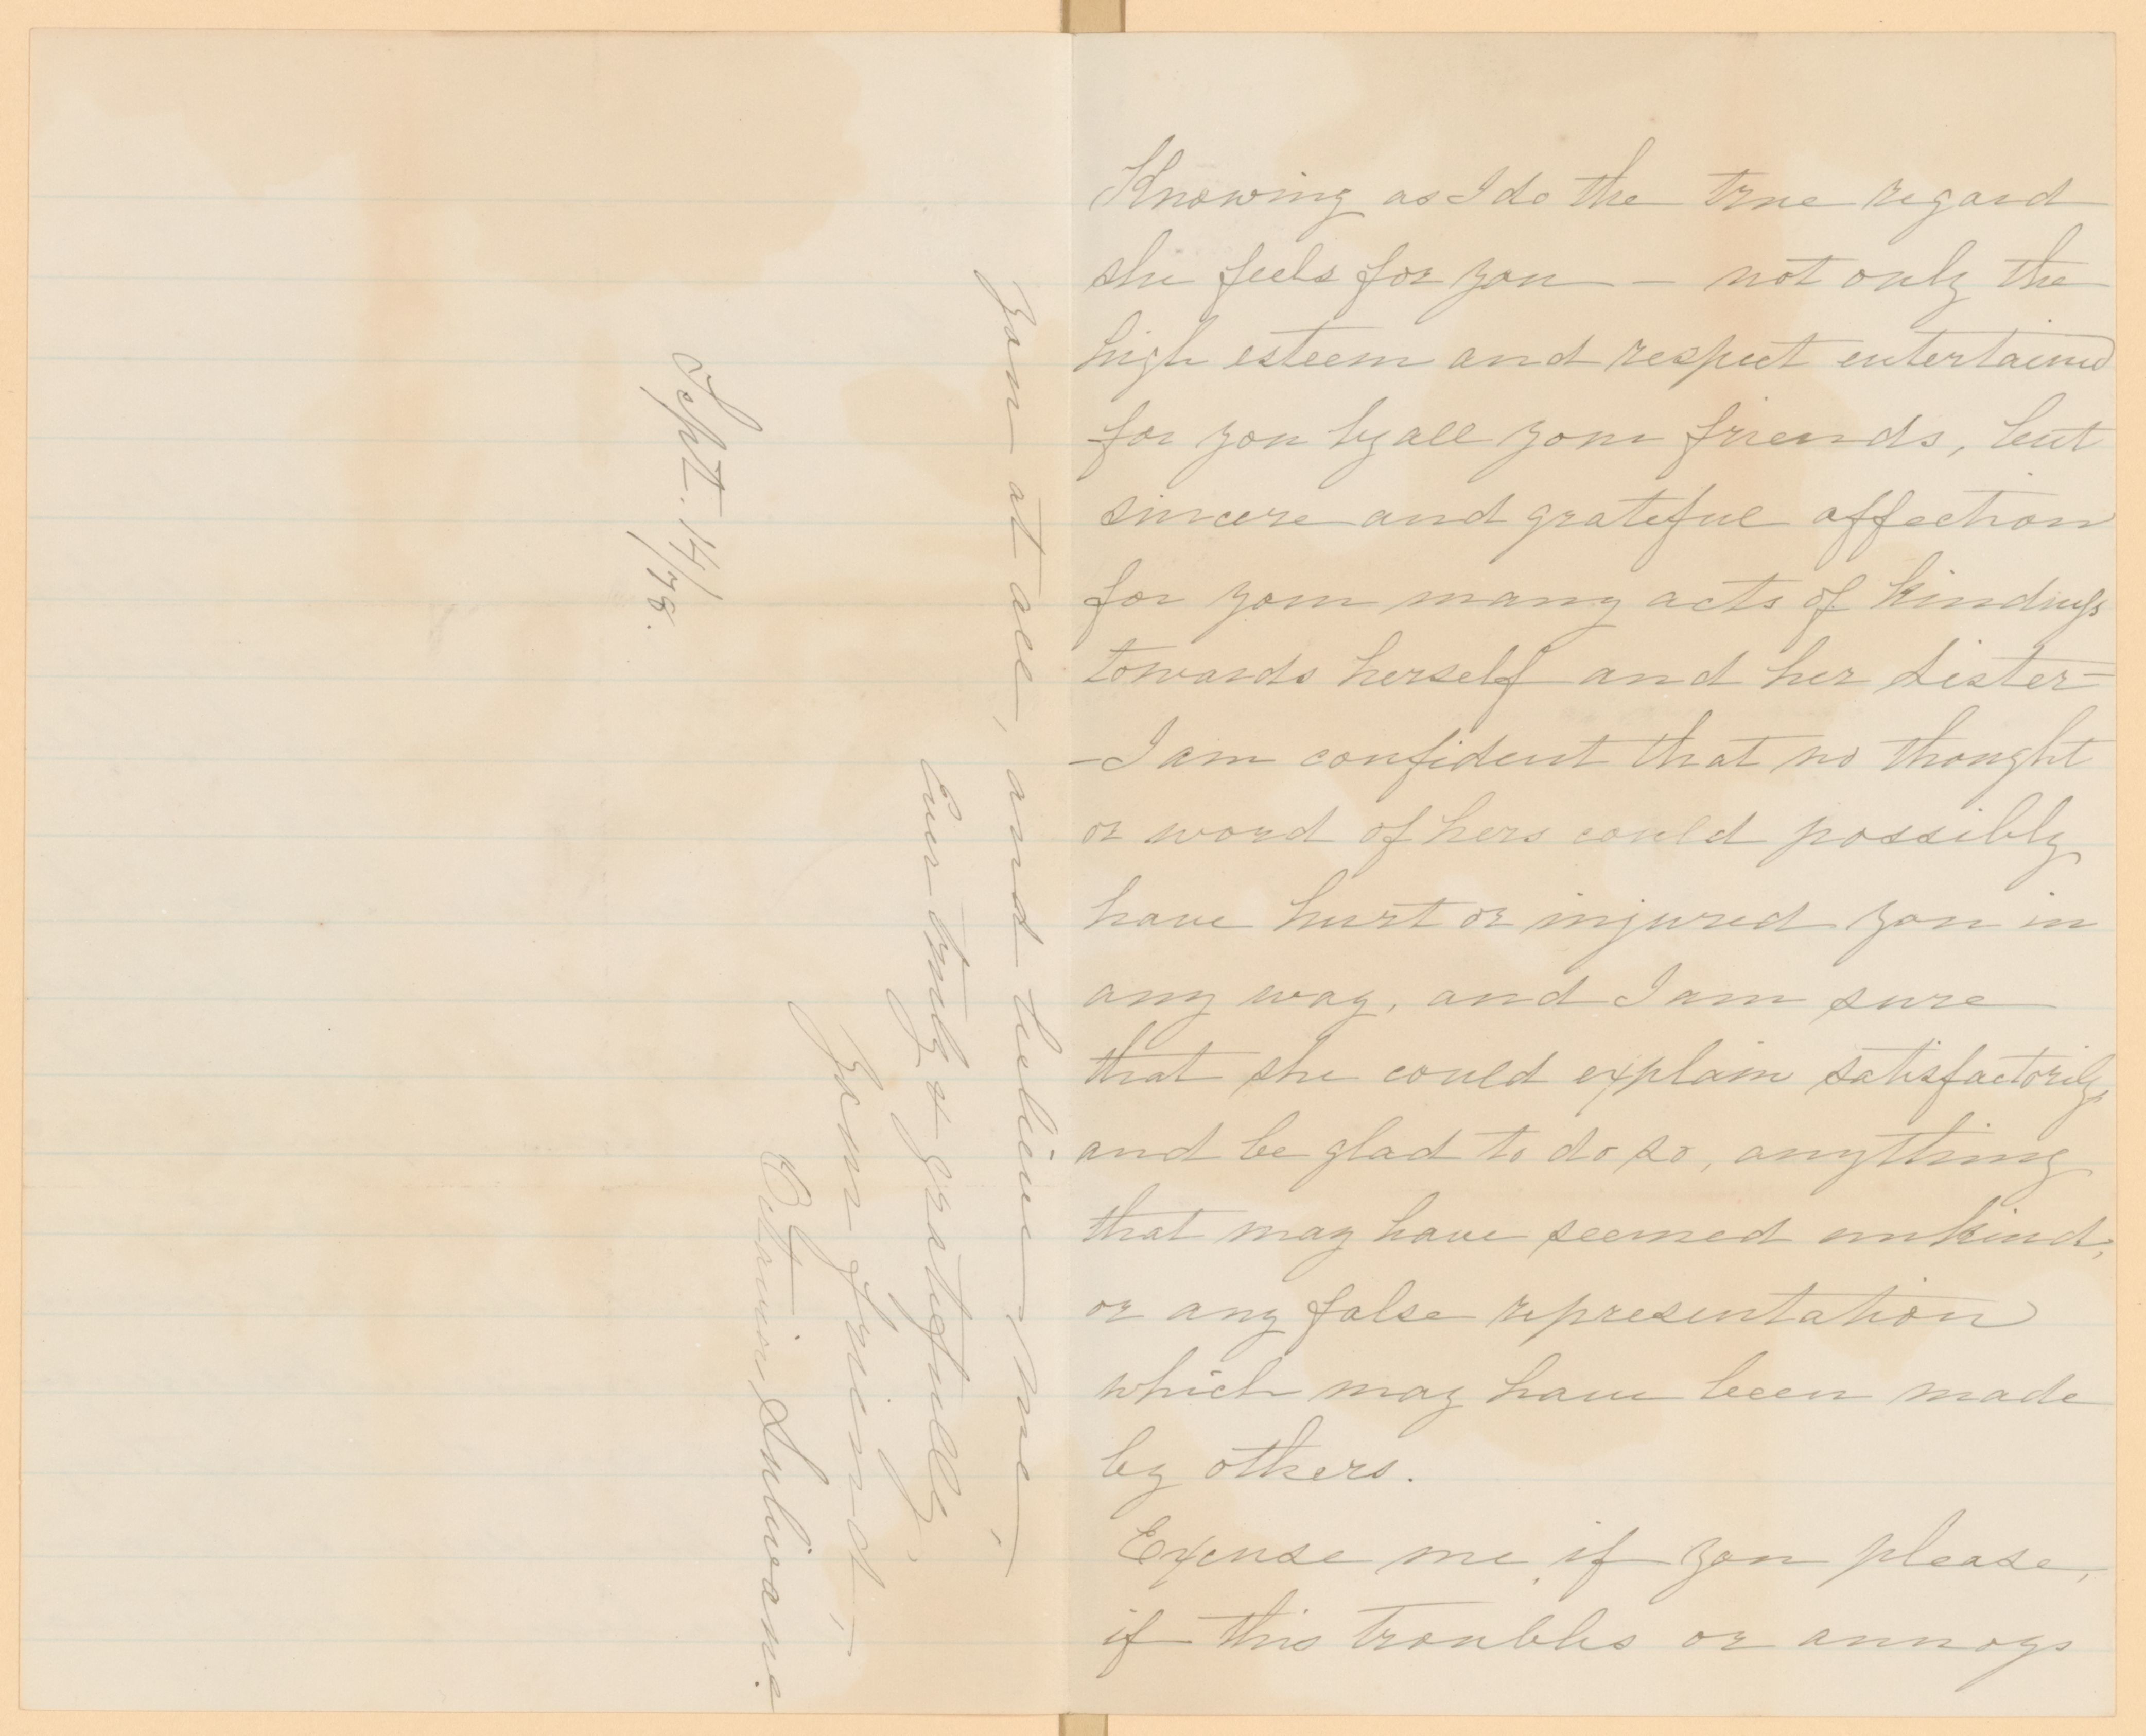 Knowing as I do the true regard
she feels for you — not only the
high esteem and respect entertained
for you by all your friends, but
sincere and grateful affection
for your many acts of kindness
towards herself and her sister—
—I am confident that no thought
or word of hers could possibly
have hurt or injured you in
any way, and I am sure
that she could explain satisfactorily,
and be glad to do so, anything
that may have seemed unkind,
or any false representation
which may have been made
by others.
Excuse me, if you please,
if this troubles or annoys
you at all, and believe me,
Ever truly & gratefully,
Your friend,—
Octavius Sulivane.
Sept. 14/78.